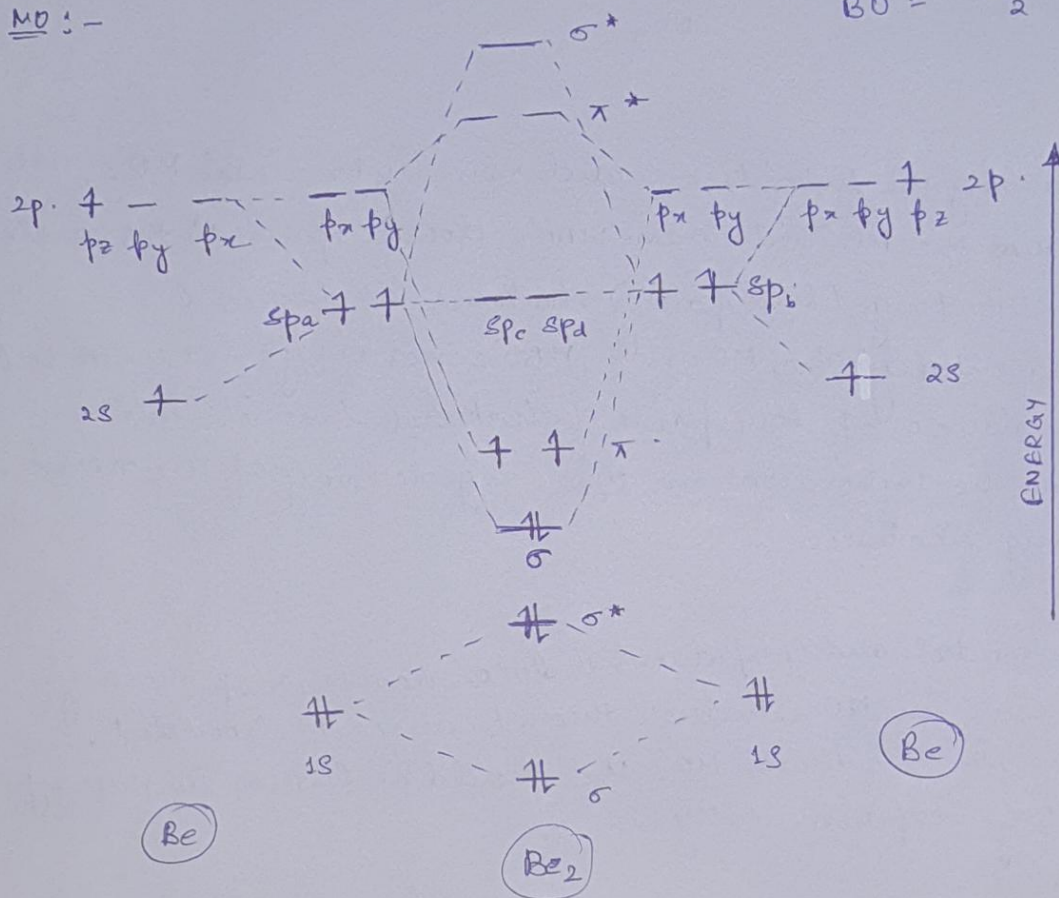 MO :-
BO = 2
σ*
π*
2p. pz py px px py
px py px py pz 2p.
spa spc spd spb
2s 2s
π.
σ
σ*
1s 1s
σ
Be Be2 Be
ENERGY